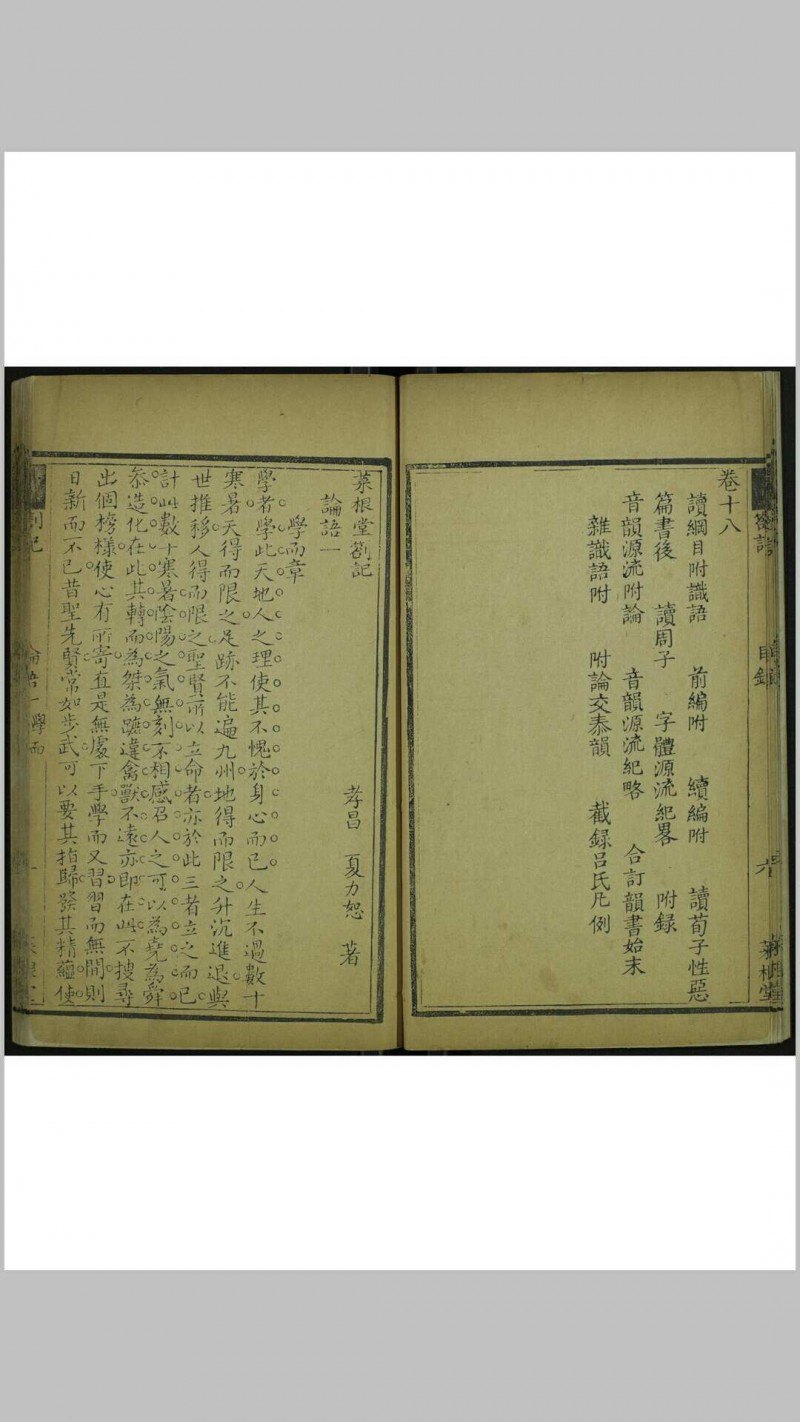 卷十八
讀綱目附識語　前編附　續編附　讀荀子性惡
篇書後　讀周子　字體源流紀畧　附録
音韻源流附論　音韻源流紀略　合訂韻書始末
雜識語附　附論交泰韻　截録呂氏凡例
目録
六
菜根堂
菜根堂劄記
孝昌　夏力恕　著
論語一
學而章
學者學此天地人之理使其不愧於身心而已人生不過數十
寒暑天得而限之足跡不能遍九州地得而限之升沉進退與
世推移人得而限之聖賢所以立命者亦於此三者立之而已
計此數十寒暑陰陽之氣無刻不相感召人之可以為堯為舜
叅造化在此其轉而為桀為蹠違禽獸不遠亦即在此不搜尋
出個榜樣使心有所寄直是無處下手學而又習習而無間則
日新而不已昔聖先賢常如步武可以要其指歸發其精蘊使
劄記
論語一學而
一